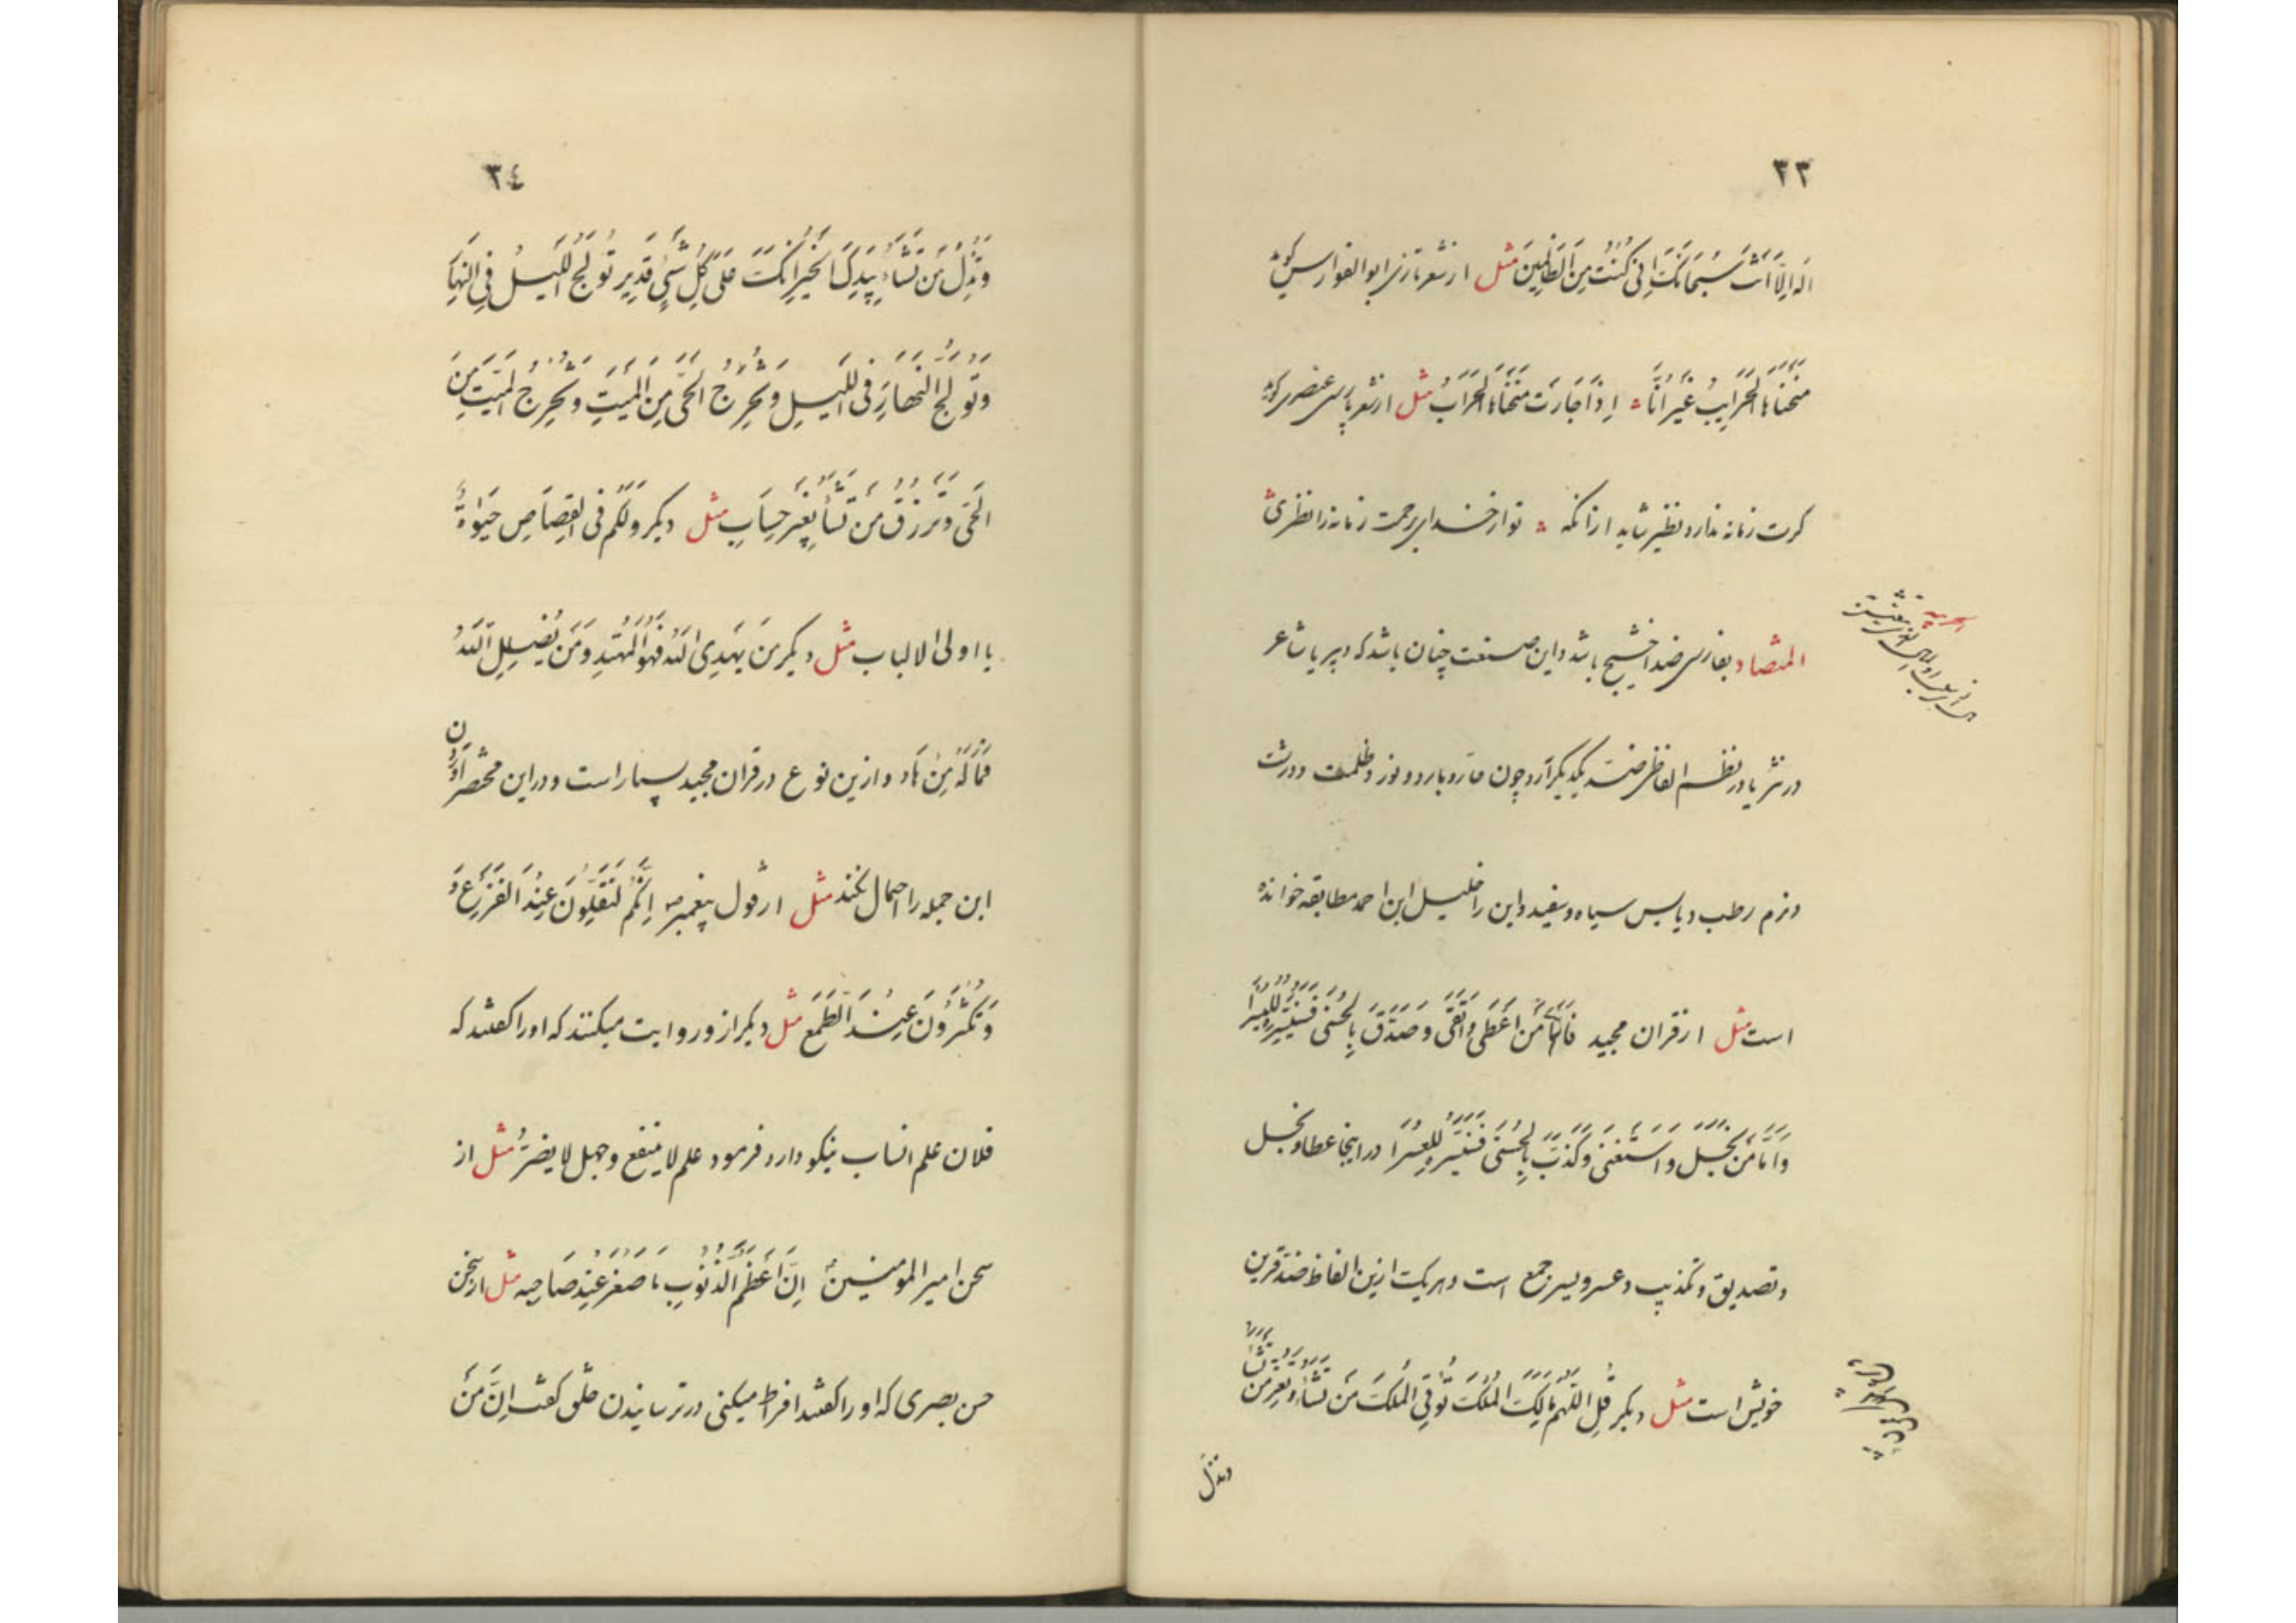 ٣٣
اله الا انت سبحانک انی کنت من الظالمین مثل از شعر تازی ابو الفوارس گوید
منحناها الحرایب غیر انا اذا جارت منحناها الحراب مثل از شعر پارسی عنصری گوید
کرت زمانه ندارد نظیر شاید ازانکه تو از خدای برحمت زمانه را نظری
المتضاد بفارسی ضد اخشیج باشد و این صنعت چنان باشد که دبیر یا شاعر
در نثر یا در نظم الفاظی ضد یکدیگر آرد چون حار و بارد و نور و ظلمت و درشت
و نرم رطب و یابس سیاه و سفید و این را خلیل ابن احمد مطابقه خوانده
است مثل از قران مجید فاما من اعطی واتقی وصدق بالحسنی فسنیسره للیسرا
واما من بخل واستغنی وکذب بالحسنی فسنیسره للعسرا در اینجا عطا و بخل
و تصدیق و تکذیب و عسر و یسر جمع است و هریک ازین الفاظ ضد قرین
خویش است مثل دیگر قل اللهم مالک الملک توتی الملک من تشاء وتعز من تشاء
وتذل
٣٤
وتذل من تشاء بیدک الخیر انک علی کل شیء قدیر تولج اللیل فی النهار
وتولج النهار فی اللیل وتخرج الحی من المیت وتخرج المیت من
الحی وترزق من تشاء بغیر حساب مثل دیگر ولکم فی القصاص حیوة
یا اولی الالباب مثل دیگر من یهدی الله فهو المهتد ومن یضلل الله
فما له من هاد و ازین نوع در قران مجید بسیار است و در این مختصر آوردن
این جمله را احتمال نکند مثل از قول پیغمبر انکم لتقلون عند الفزع و
وتکثرون عند الطمع مثل دیگر از و روایت میکنند که او را گفتند که
فلان علم انساب نیکو دارد فرمود علم لا ینفع وجهل لا یضر مثل از
سخن امیر المومنین ان اعظم الذنوب ما صغر عند صاحبه مثل از سخن
حسن بصری که او را گفتند افراط میکنی در ترسانیدن خلق گفت ان من